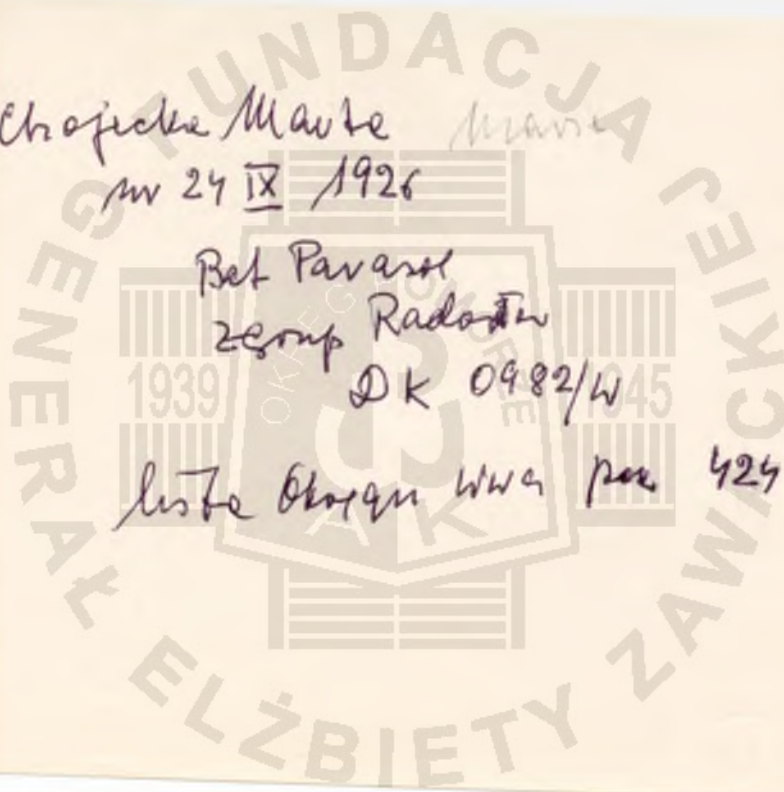 Chojecka Marta Maria
ur 24 IX 1926
Bat Parasol
zgrup Radosław
DK 0982/W
lista Okręgu Wwa poz 424
FUNDACJA GENERAŁ ELŻBIETY ZAWACKIEJ
1939 1945
OKRĘG POMORZE
AK